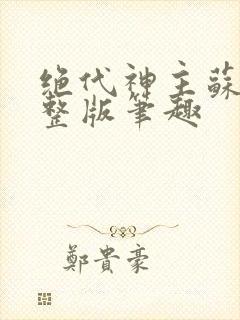 绝代神主蘇
整版筆趣
鄭貴豪